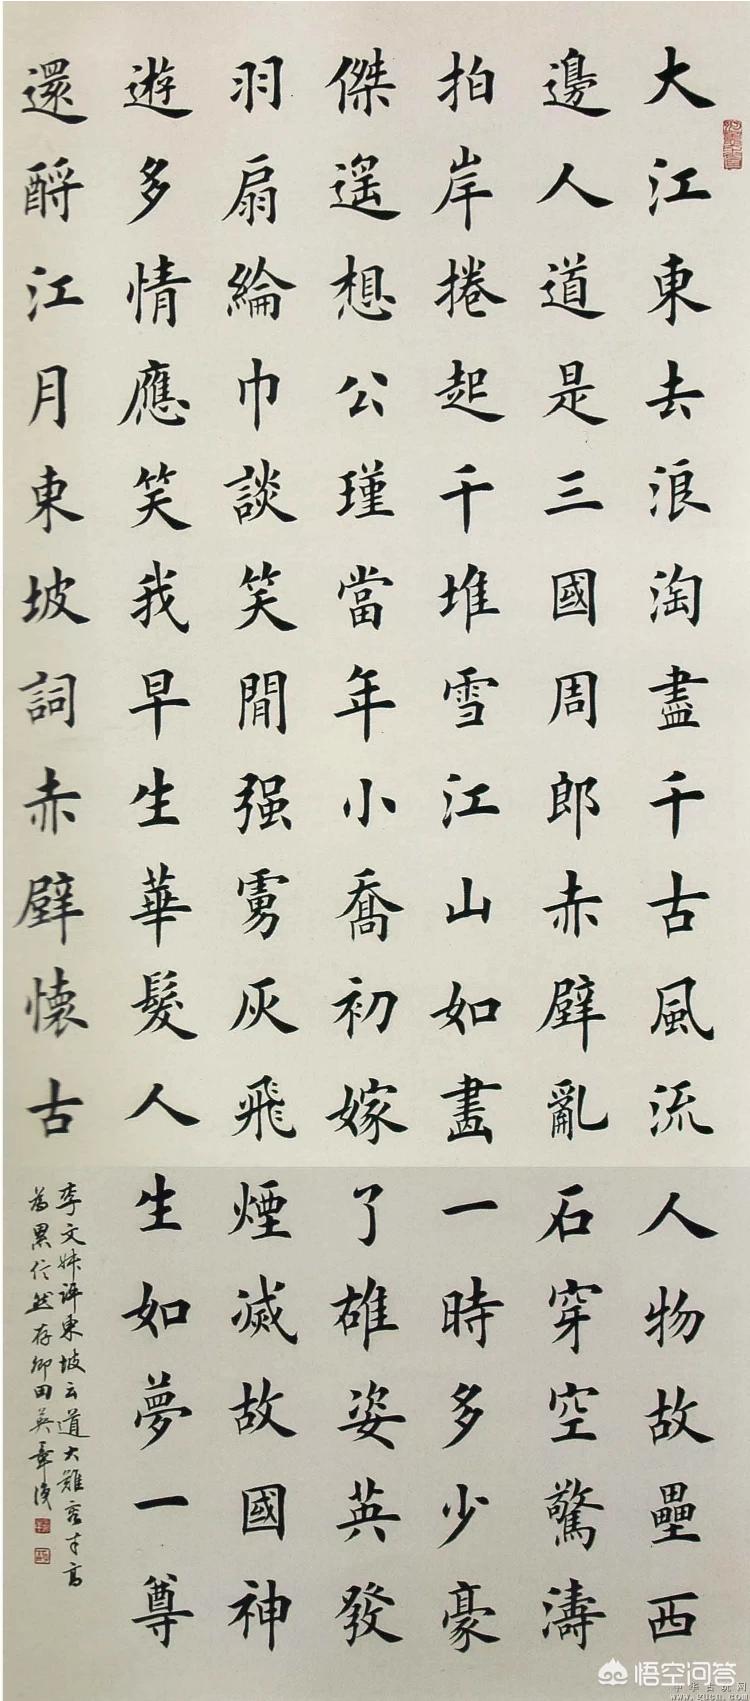 大江東去浪淘盡千古風流人物故壘西
邊人道是三國周郎赤壁亂石穿空驚濤
拍岸捲起千堆雪江山如畫一時多少豪
傑遙想公瑾當年小喬初嫁了雄姿英發
羽扇綸巾談笑間强虜灰飛煙滅故國神
遊多情應笑我早生華髮人生如夢一尊
還酹江月東坡詞赤壁懷古
李文姝評東坡云道大難容才高
為累信然存卿田英章漫
悟空问答
中华古玩网
www.gucn.com